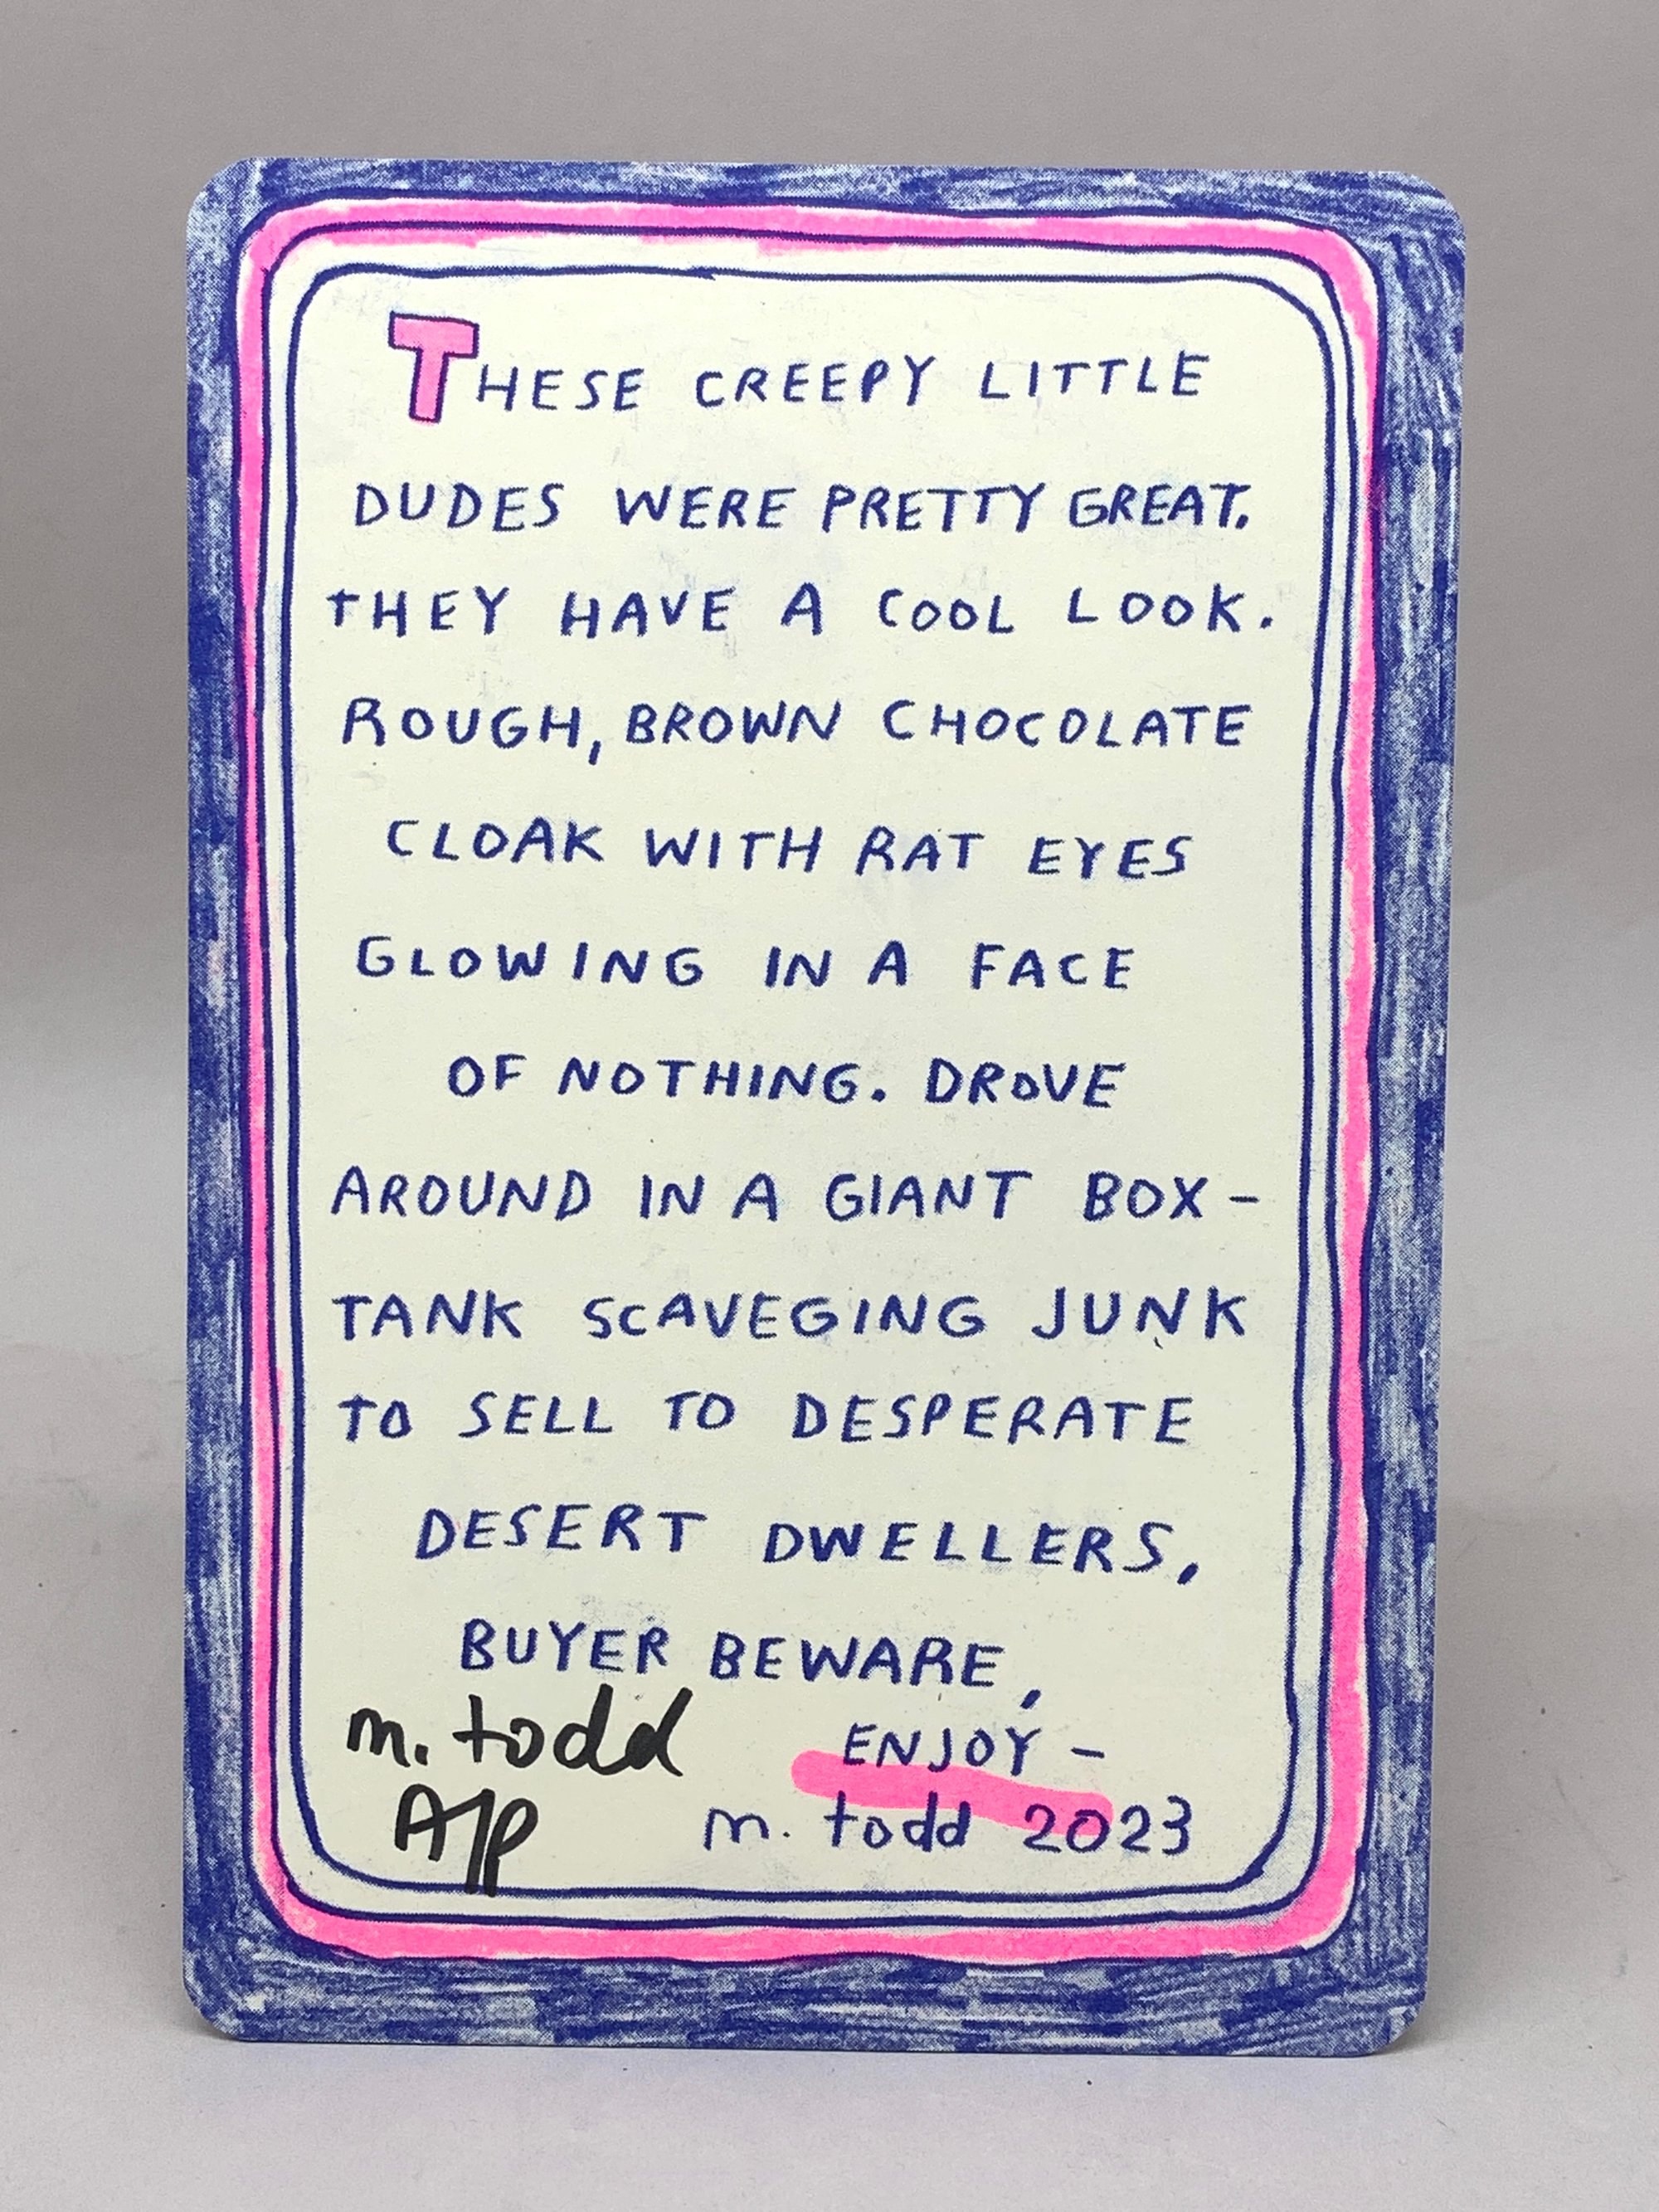 THESE CREEPY LITTLE
DUDES WERE PRETTY GREAT.
THEY HAVE A COOL LOOK.
ROUGH, BROWN CHOCOLATE
CLOAK WITH RAT EYES
GLOWING IN A FACE
OF NOTHING. DROVE
AROUND IN A GIANT BOX-
TANK SCAVEGING JUNK
TO SELL TO DESPERATE
DESERT DWELLERS,
BUYER BEWARE,
ENJOY -
m. todd 2023
m. todd
A/P